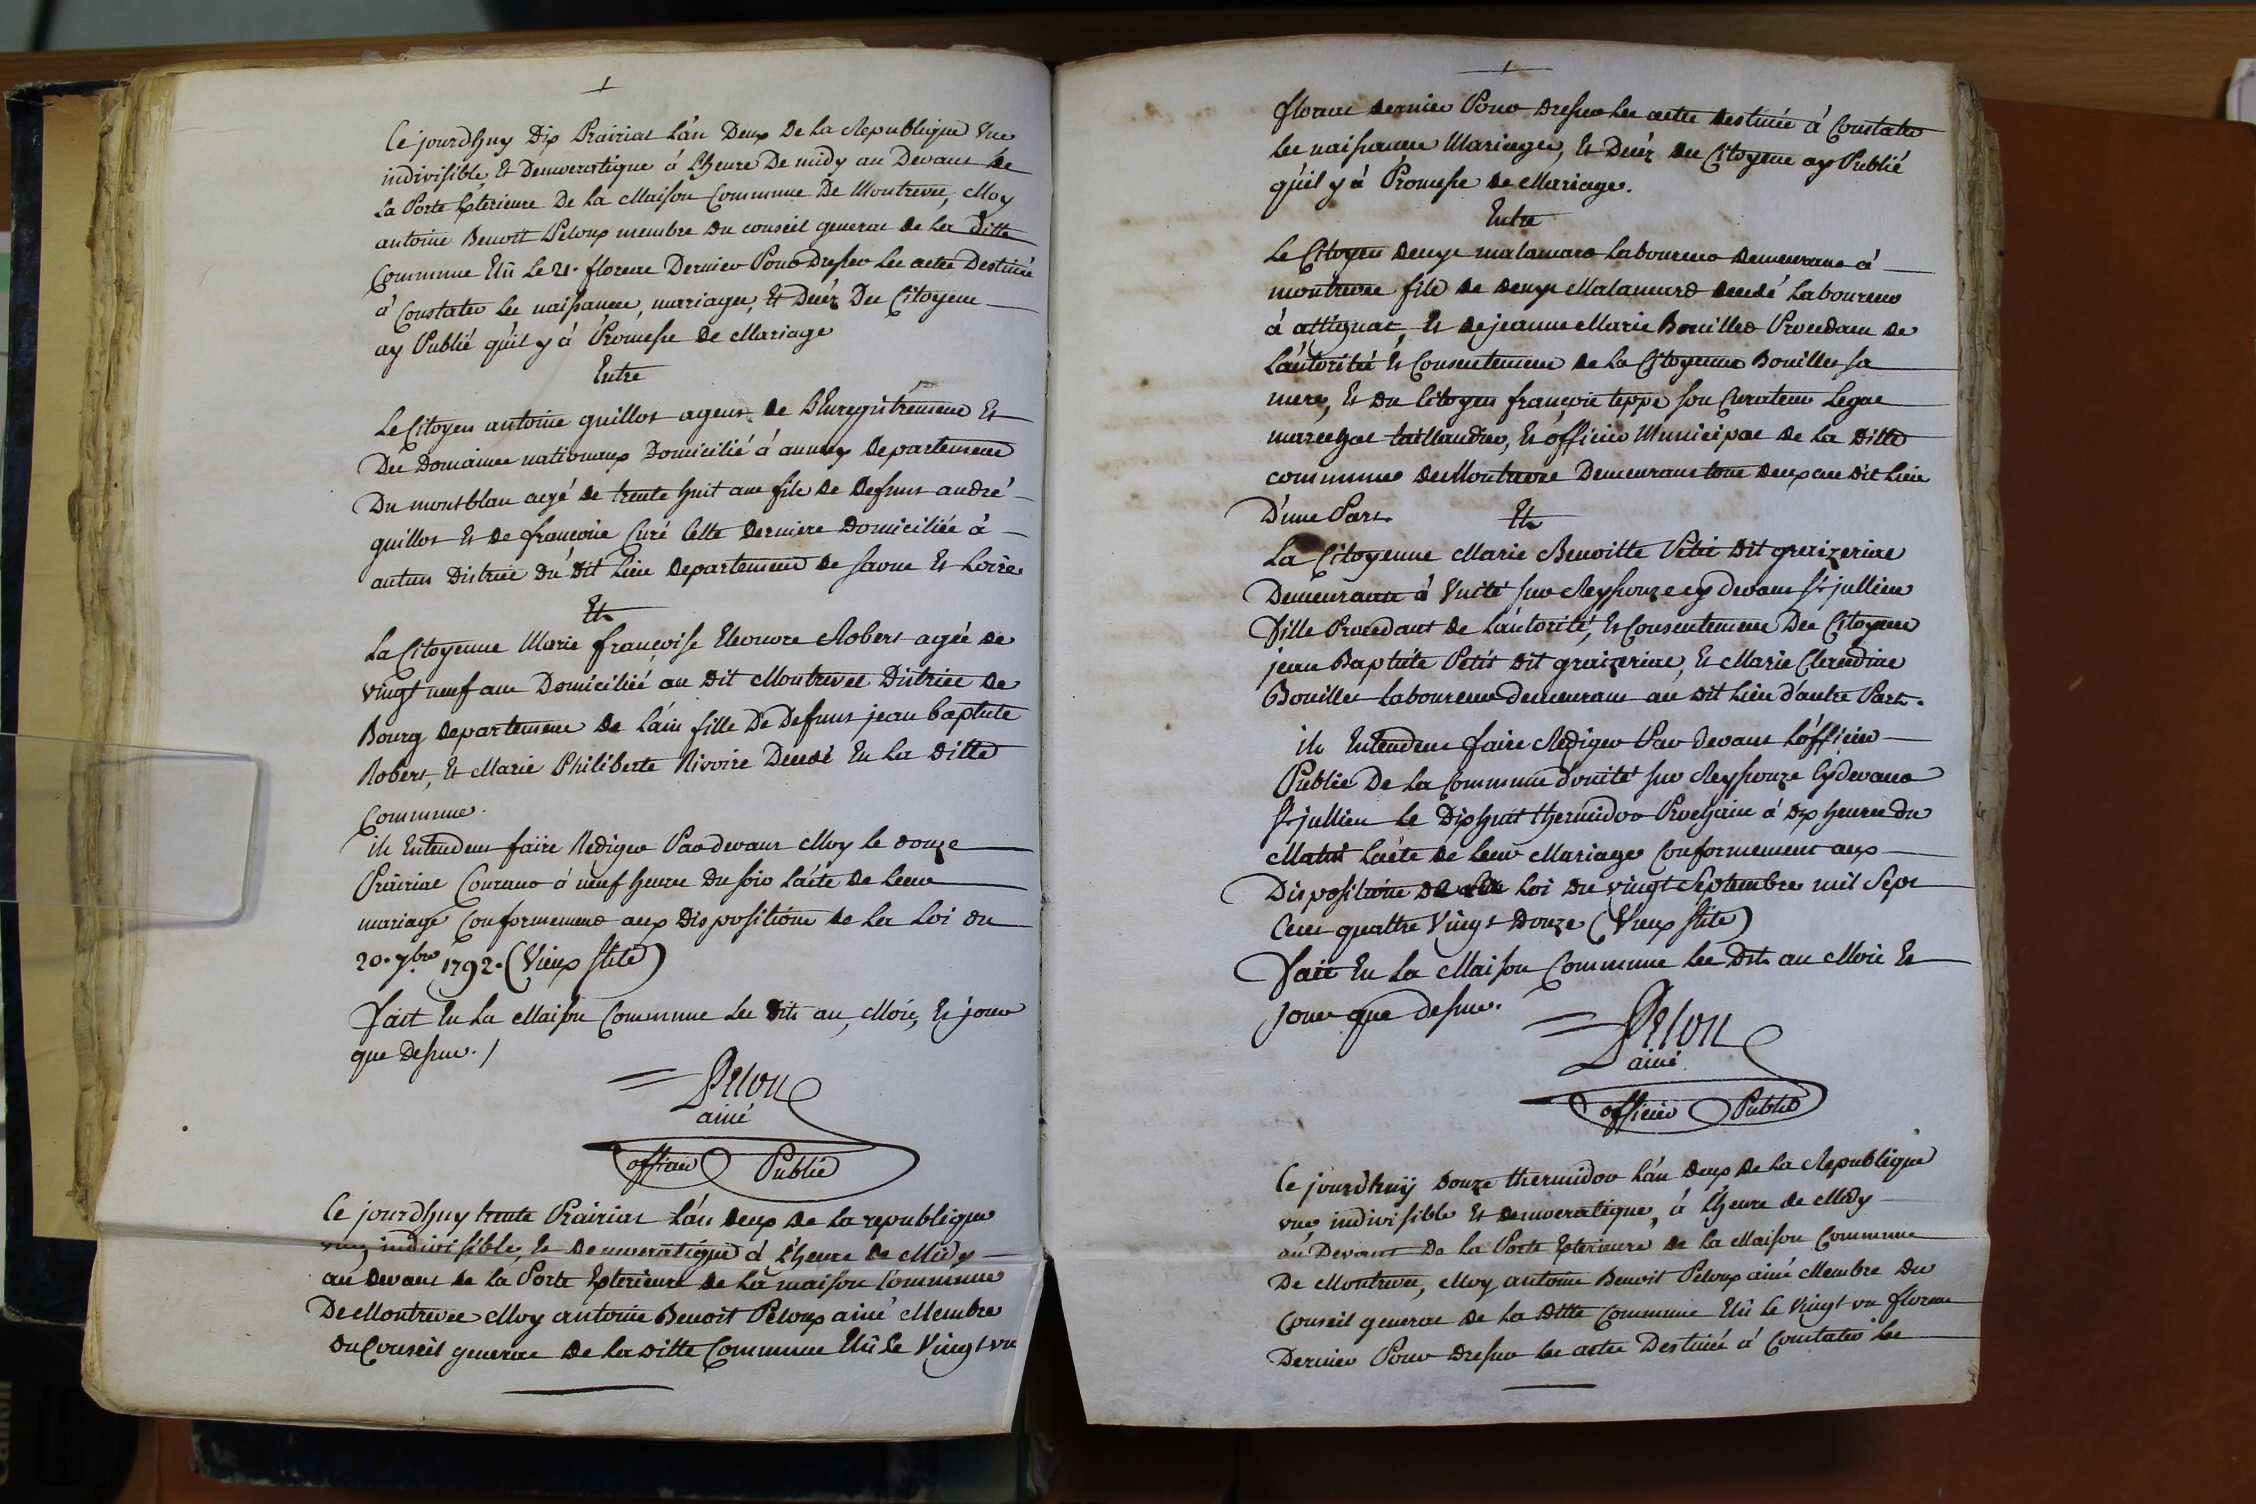 Ce jourdhuy Dix Prairial L'an Deux De La Republique Une
indivisible, Et Democratique á L'heure De midy au Devant de
La Porte Exterieure De La Maison Commune De Montrevel, Moy
antoine Benoit Peloux membre du conseil general de La Ditte
Commune Elû Le 21. floreal Dernier Pour Dresser Les actes Destinés
á Constater Les naissances, mariages, Et Décéz Des Citoyens
ay Publié qu'il y á Promesse de Mariage
Entre
Le Citoyen antoine guillot agent de L'Enregistrement Et
Des Domaines nationaux Domicilié á annecy Departement
Du montblanc agé de trente huit ans fils de Defunt andré
guillot Et de françoise Curé Cette Derniere Domiciliée á
autun District du dit Lieu Departement de saone Et Loire
Et
La Citoyenne Marie françoise Eleonore Robert agée de
vingt neuf ans Domiciliée au dit Montrevel District de
Bourg Departement de L'ain fille De Defunt jean baptiste
Robert, Et Marie Philiberte Rivoire Decedé En La ditte
Commune.
ils Entendent faire Rediger Pardevant Moy le douze
Prairial Courant á neuf heures Du soir L'acte de Leur
mariage Conformement aux Dispositions de La Loi du
20. 7bre 1792. (Vieux stile)
fait En La Maison Commune Les dits an, Mois, Et jour
que Dessus. /
Pelou
ainé
officier Public
Ce jourdhuy trente Prairial L'an deux de La republique
une, indivisible, Et Democratique á L'heure de Midy
au devant de La Porte Exterieure de La maison Commune
De Montrevel Moy antoine Benoit Peloux ainé Membre
du Conseil general de La ditte Commune Elû Le Vingt un
floreal dernier Pour dresser Les actes destinés á Constater
Les naissances Mariages, Et Décéz des Citoyens ay Publié
qu'il y á Promesse de Mariage.
Entre
Le Citoyen denys malamard Laboureur demeurant á
montrevel fils de denys Malamard decedé Laboureur
á attignat, Et de jeanne Marie Bouillet Procedant de
L'autorité Et Consentement de La Citoyenne Bouillet sa
mere, Et du Citoyen françois teppe son Curateur Legal
marechal taillandier, Et officier Municipal de La ditte
commune de Montrevel Demeurant tous deux au dit Lieu
D'une Part. Et
La Citoyenne Marie Benoitte Petit dit graizeriat
Demeurante á Unité sur Reyssouze cy devant St jullien
fille Procedant de L'autorité, Et Consentement Des Citoyens
jean Baptiste Petit dit graizeriat, Et Marie Claudine
Bouillet Laboureur demeurant au dit Lieu d'autre Part.
ils Entendent faire Rediger Par devant L'officier
Public De La Commune d'unité sur Reyssouze Cydevant
St jullien Le Dixhuit thermidor Prochain á dix heures du
Matin L'acte de Leur Mariage Conformement aux
Dispositions de La Loi Du vingt Septembre mil Sept
Cent quattre Vingt Douze (Vieux stile)
fait En La Maison Commune Les Dits an Mois Et
jour que dessus.
Pelou
ainé
officier Public
Ce jourdhuy douze thermidor L'an deux de La Republique
une indivisible Et democratique, á L'heure de Midy
au Devant De La Porte Exterieure de La Maison Commune
De Montrevel, Moy antoine Benoit Peloux ainé Membre du
Conseil general de La ditte Commune Elû Le Vingt un floreal
Dernier Pour dresser Les actes Destinés á Constater Les